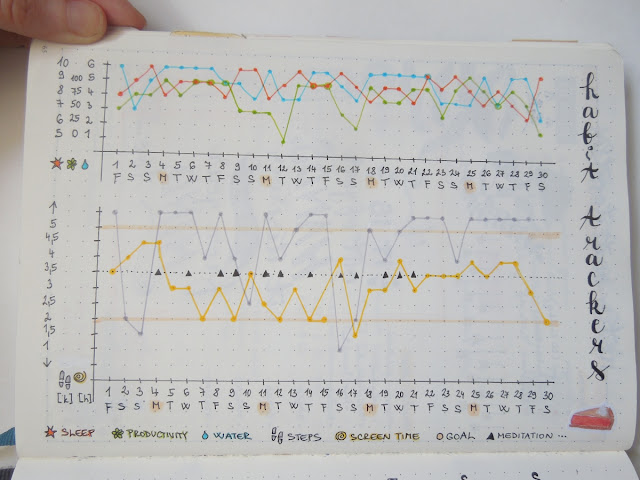 habit trackers
10 100 6
9 100 5
8 75 4
7 50 3
6 25 2
5 0 1
1 2 3 4 5 6 7 8 9 10 11 12 13 14 15 16 17 18 19 20 21 22 23 24 25 26 27 28 29 30
F S S M T W T F S S M T W T F S S M T W T F S S M T W T F S
5
4,5
4
3,5
3
2,5
2
1,5
1
[k] [h]
1 2 3 4 5 6 7 8 9 10 11 12 13 14 15 16 17 18 19 20 21 22 23 24 25 26 27 28 29 30
F S S M T W T F S S M T W T F S S M T W T F S S M T W T F S
SLEEP PRODUCTIVITY WATER STEPS SCREEN TIME GOAL MEDITATION ...